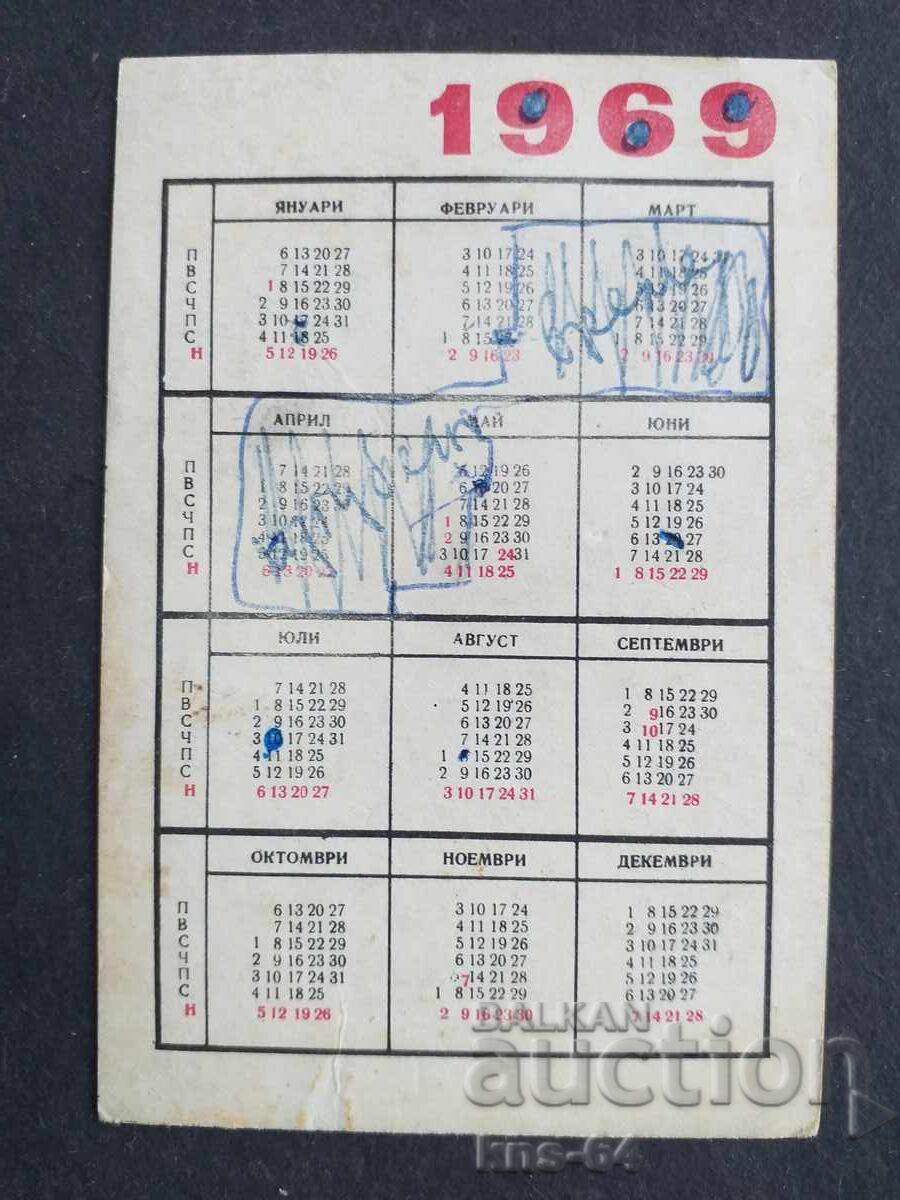 1969
ЯНУАРИ ФЕВРУАРИ МАРТ
П 6 13 20 27 3 10 17 24 3 10 17 24 31
В 7 14 21 28 4 11 18 25 4 11 18 25
С 1 8 15 22 29 5 12 19 26 5 12 19 26
Ч 2 9 16 23 30 6 13 20 27 6 13 20 27
П 3 10 17 24 31 7 14 21 28 7 14 21 28
С 4 11 18 25 1 8 15 22 1 8 15 22 29
Н 5 12 19 26 2 9 16 23 2 9 16 23 30
АПРИЛ МАЙ ЮНИ
П 7 14 21 28 5 12 19 26 2 9 16 23 30
В 1 8 15 22 29 6 13 20 27 3 10 17 24
С 2 9 16 23 30 7 14 21 28 4 11 18 25
Ч 3 10 17 24 1 8 15 22 29 5 12 19 26
П 4 11 18 25 2 9 16 23 30 6 13 20 27
С 5 12 19 26 3 10 17 24 31 7 14 21 28
Н 6 13 20 27 4 11 18 25 1 8 15 22 29
ЮЛИ АВГУСТ СЕПТЕМВРИ
П 7 14 21 28 4 11 18 25 1 8 15 22 29
В 1 8 15 22 29 5 12 19 26 2 9 16 23 30
С 2 9 16 23 30 6 13 20 27 3 10 17 24
Ч 3 10 17 24 31 7 14 21 28 4 11 18 25
П 4 11 18 25 1 8 15 22 29 5 12 19 26
С 5 12 19 26 2 9 16 23 30 6 13 20 27
Н 6 13 20 27 3 10 17 24 31 7 14 21 28
ОКТОМВРИ НОЕМВРИ ДЕКЕМВРИ
П 6 13 20 27 3 10 17 24 1 8 15 22 29
В 7 14 21 28 4 11 18 25 2 9 16 23 30
С 1 8 15 22 29 5 12 19 26 3 10 17 24 31
Ч 2 9 16 23 30 6 13 20 27 4 11 18 25
П 3 10 17 24 31 7 14 21 28 5 12 19 26
С 4 11 18 25 1 8 15 22 29 6 13 20 27
Н 5 12 19 26 2 9 16 23 30 7 14 21 28
BALKAN
auction
kns-64